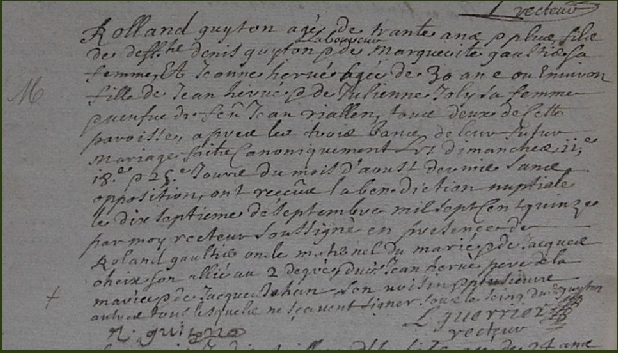 recteur
Rolland guyton agé de trante ans et plus fils
Laboureur
de defft denis guyton et de Marguerite gaultier sa
femme, Et Jeanne hervé agée de 30 ans ou Environ
fille de Jean hervé et de Julienne Joly sa femme
M
veufve de feu Jean riallen, tous deux de cette
paroisse, apres les trois bans de leur futur
Mariage faits Canoniquement les dimanches 11e
18e et 25e jours du mois d'aoust dernier sans
opposition, ont reçeue la benediction nuptiale
le dix septieme de septembre mil sept Cent quinze
par moy recteur soussigné en presence de
Roland gaultier oncle maternel du marié et de Jacques
son allié au 2 degré, du Jean hervé pere de la
mariée et de Jacques Jehan son voisin et plusieurs
autres tous lesquels ne sçavent signer, sous le seing du guyton
R. guiton
L guerrier
recteur